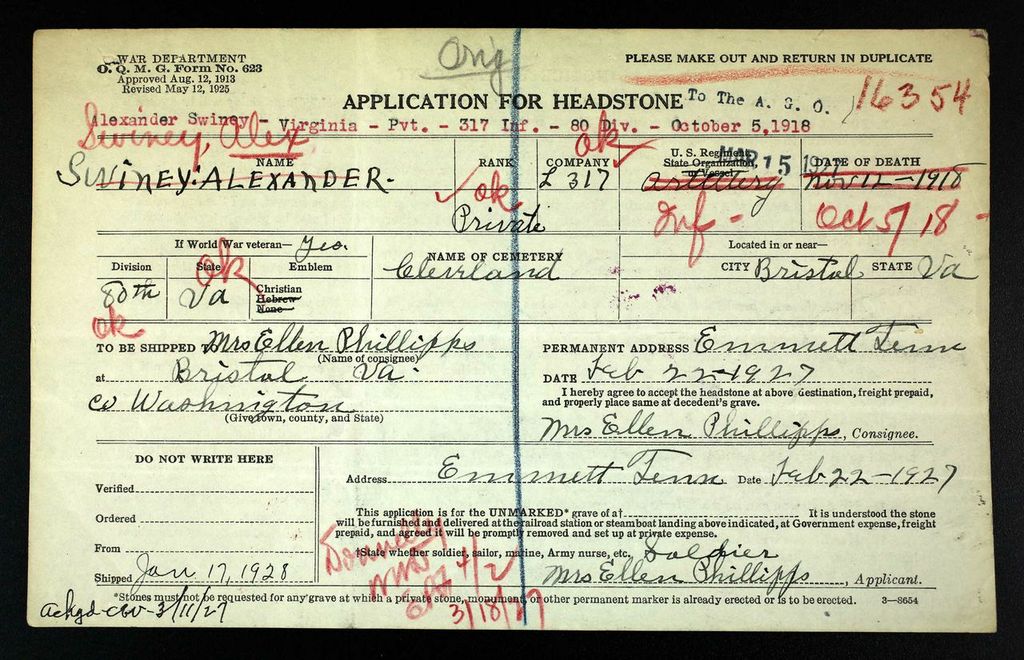 Orig
WAR DEPARTMENT
O. Q. M. G. Form No. 623
Approved Aug. 12, 1913
Revised May 12, 1925
PLEASE MAKE OUT AND RETURN IN DUPLICATE
APPLICATION FOR HEADSTONE
To The A. G. O.
16354
Alexander Swiney - Virginia - Pvt. - 317 Inf. - 80 Div. - October 5, 1918
Swiney, Alex
ok
NAME
RANK
COMPANY
U. S. Regiment
State Organization
or Vessel
MAR 15
DATE OF DEATH
SWINEY. ALEXANDER.
ok
Private
L 317
Artillery
Nov 12-1918
Inf-
Oct 5/18-
If World War veteran— Yes.
Division
State
Emblem
80th
ok
Va
ok
Christian
Hebrew
None
NAME OF CEMETERY
Cleveland
Located in or near—
CITY Bristol STATE Va
TO BE SHIPPED Mrs Ellen Phillipps
(Name of consignee)
at Bristol Va.
co Washington
(Give town, county, and State)
PERMANENT ADDRESS Emmett Tenn
DATE Feb 22-1927
I hereby agree to accept the headstone at above destination, freight prepaid,
and properly place same at decedent's grave.
Mrs Ellen Phillipps, Consignee.
DO NOT WRITE HERE
Verified
Ordered
From
Shipped Jan 17, 1928
Address Emmett Tenn Date Feb 22-1927
This application is for the UNMARKED* grave of a† It is understood the stone
will be furnished and delivered at the railroad station or steamboat landing above indicated, at Government expense, freight
prepaid, and agreed it will be promptly removed and set up at private expense.
†State whether soldier, sailor, marine, Army nurse, etc. Soldier
Mrs Ellen Phillipps, Applicant.
3/18/27
*Stones must not be requested for any grave at which a private stone, monument, or other permanent marker is already erected or is to be erected.
3—8654
3/11/27